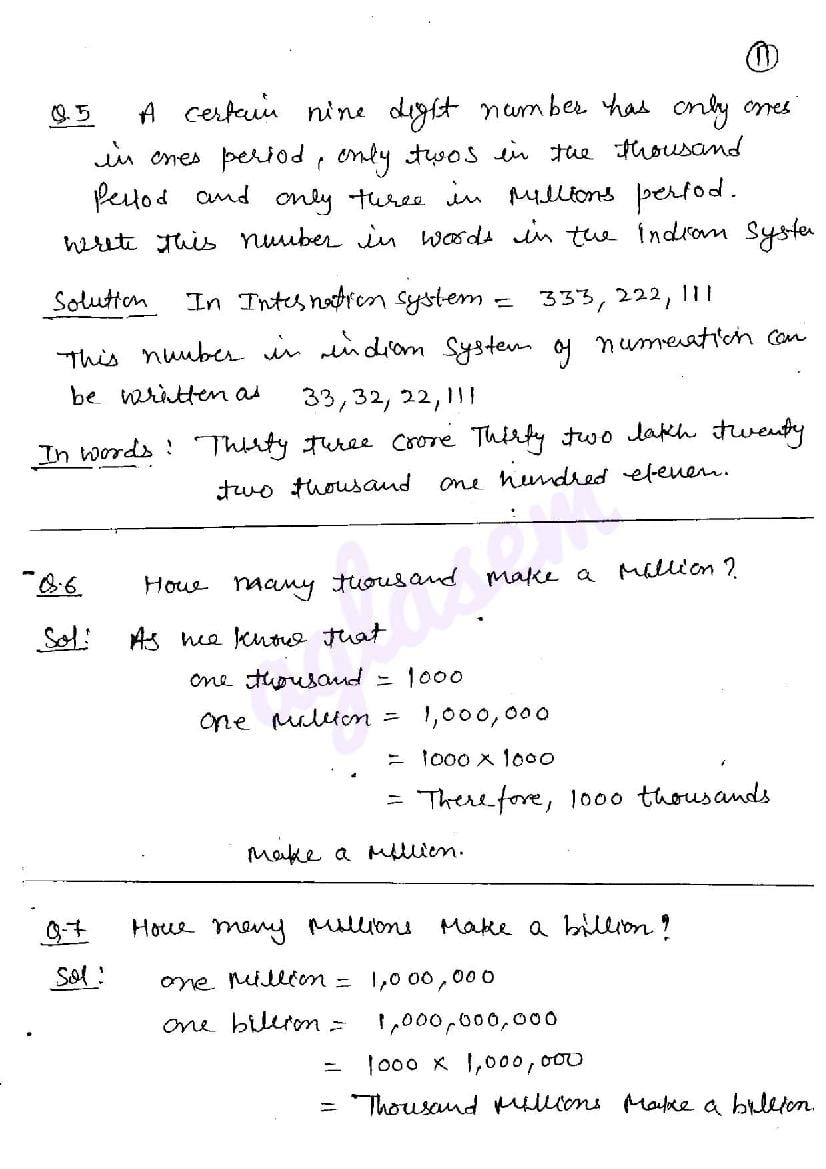 11
Q.5 A certain nine digit number has only ones
in ones period, only twos in the thousand
Period and only three in Millions period.
Write This number in words in the Indian System
Solution In Internation system = 333, 222, 111
This number in indian System of numeration can
be written as 33, 32, 22, 111
In words : Thirty three crore Thirty two lakh twenty
two thousand one hundred eleven.
Q.6 How many thousand make a Million?
Sol: As we know that
one thousand = 1000
one million = 1,000,000
= 1000 × 1000
= Therefore, 1000 thousands
Make a Million.
Q.7 How many Millions Make a billion?
Sol: one Million = 1,000,000
one billion = 1,000,000,000
= 1000 × 1,000,000
= Thousand Millions Make a billion.
aglasem